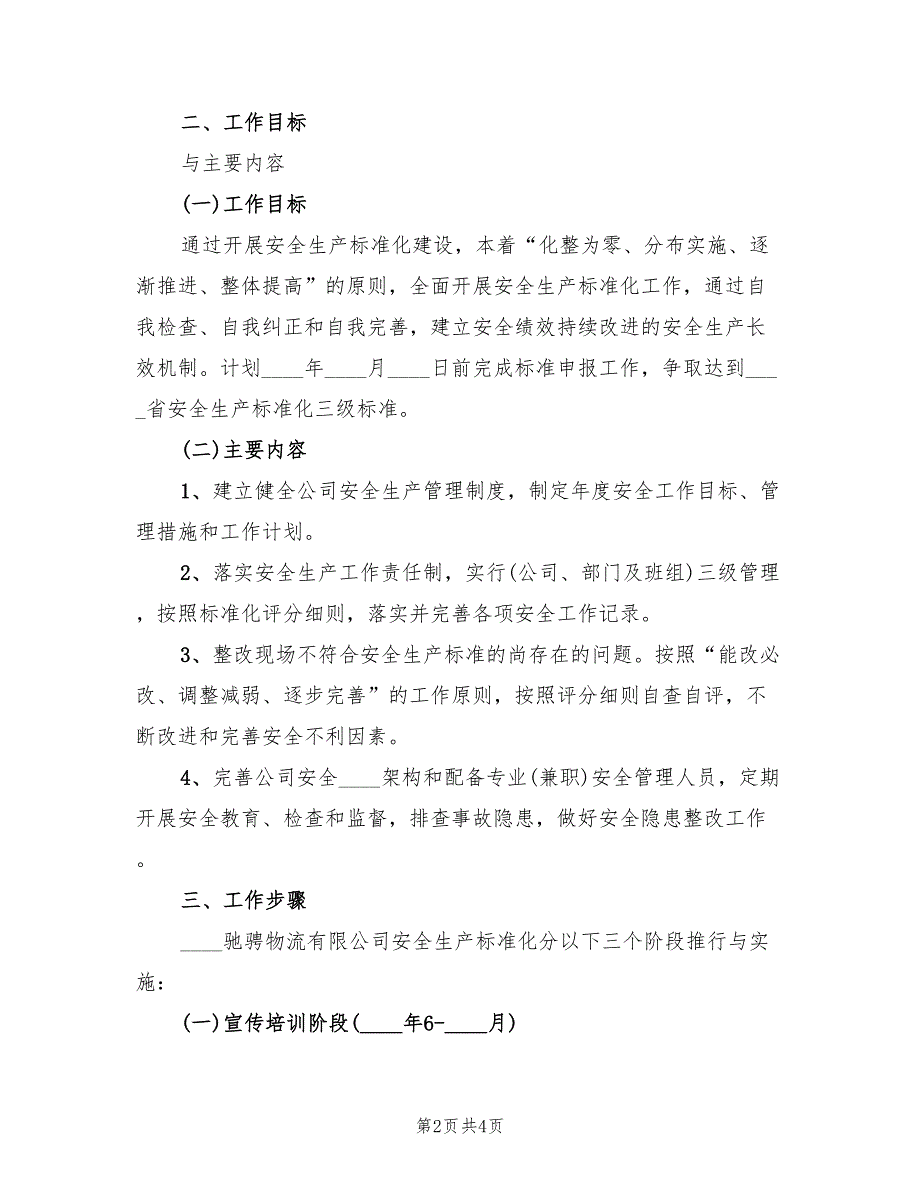 二、工作目标
与主要内容
(一)工作目标
通过开展安全生产标准化建设，本着“化整为零、分布实施、逐
渐推进、整体提高”的原则，全面开展安全生产标准化工作，通过自
我检查、自我纠正和自我完善，建立安全绩效持续改进的安全生产长
效机制。计划____年____月____日前完成标准申报工作，争取达到___
_省安全生产标准化三级标准。
(二)主要内容
1、建立健全公司安全生产管理制度，制定年度安全工作目标、管
理措施和工作计划。
2、落实安全生产工作责任制，实行(公司、部门及班组)三级管理
，按照标准化评分细则，落实并完善各项安全工作记录。
3、整改现场不符合安全生产标准的尚存在的问题。按照“能改必
改、调整减弱、逐步完善”的工作原则，按照评分细则自查自评，不
断改进和完善安全不利因素。
4、完善公司安全____架构和配备专业(兼职)安全管理人员，定期
开展安全教育、检查和监督，排查事故隐患，做好安全隐患整改工作
。
三、工作步骤
____驰骋物流有限公司安全生产标准化分以下三个阶段推行与实
施：
(一)宣传培训阶段(____年6-____月)
第2页共4页